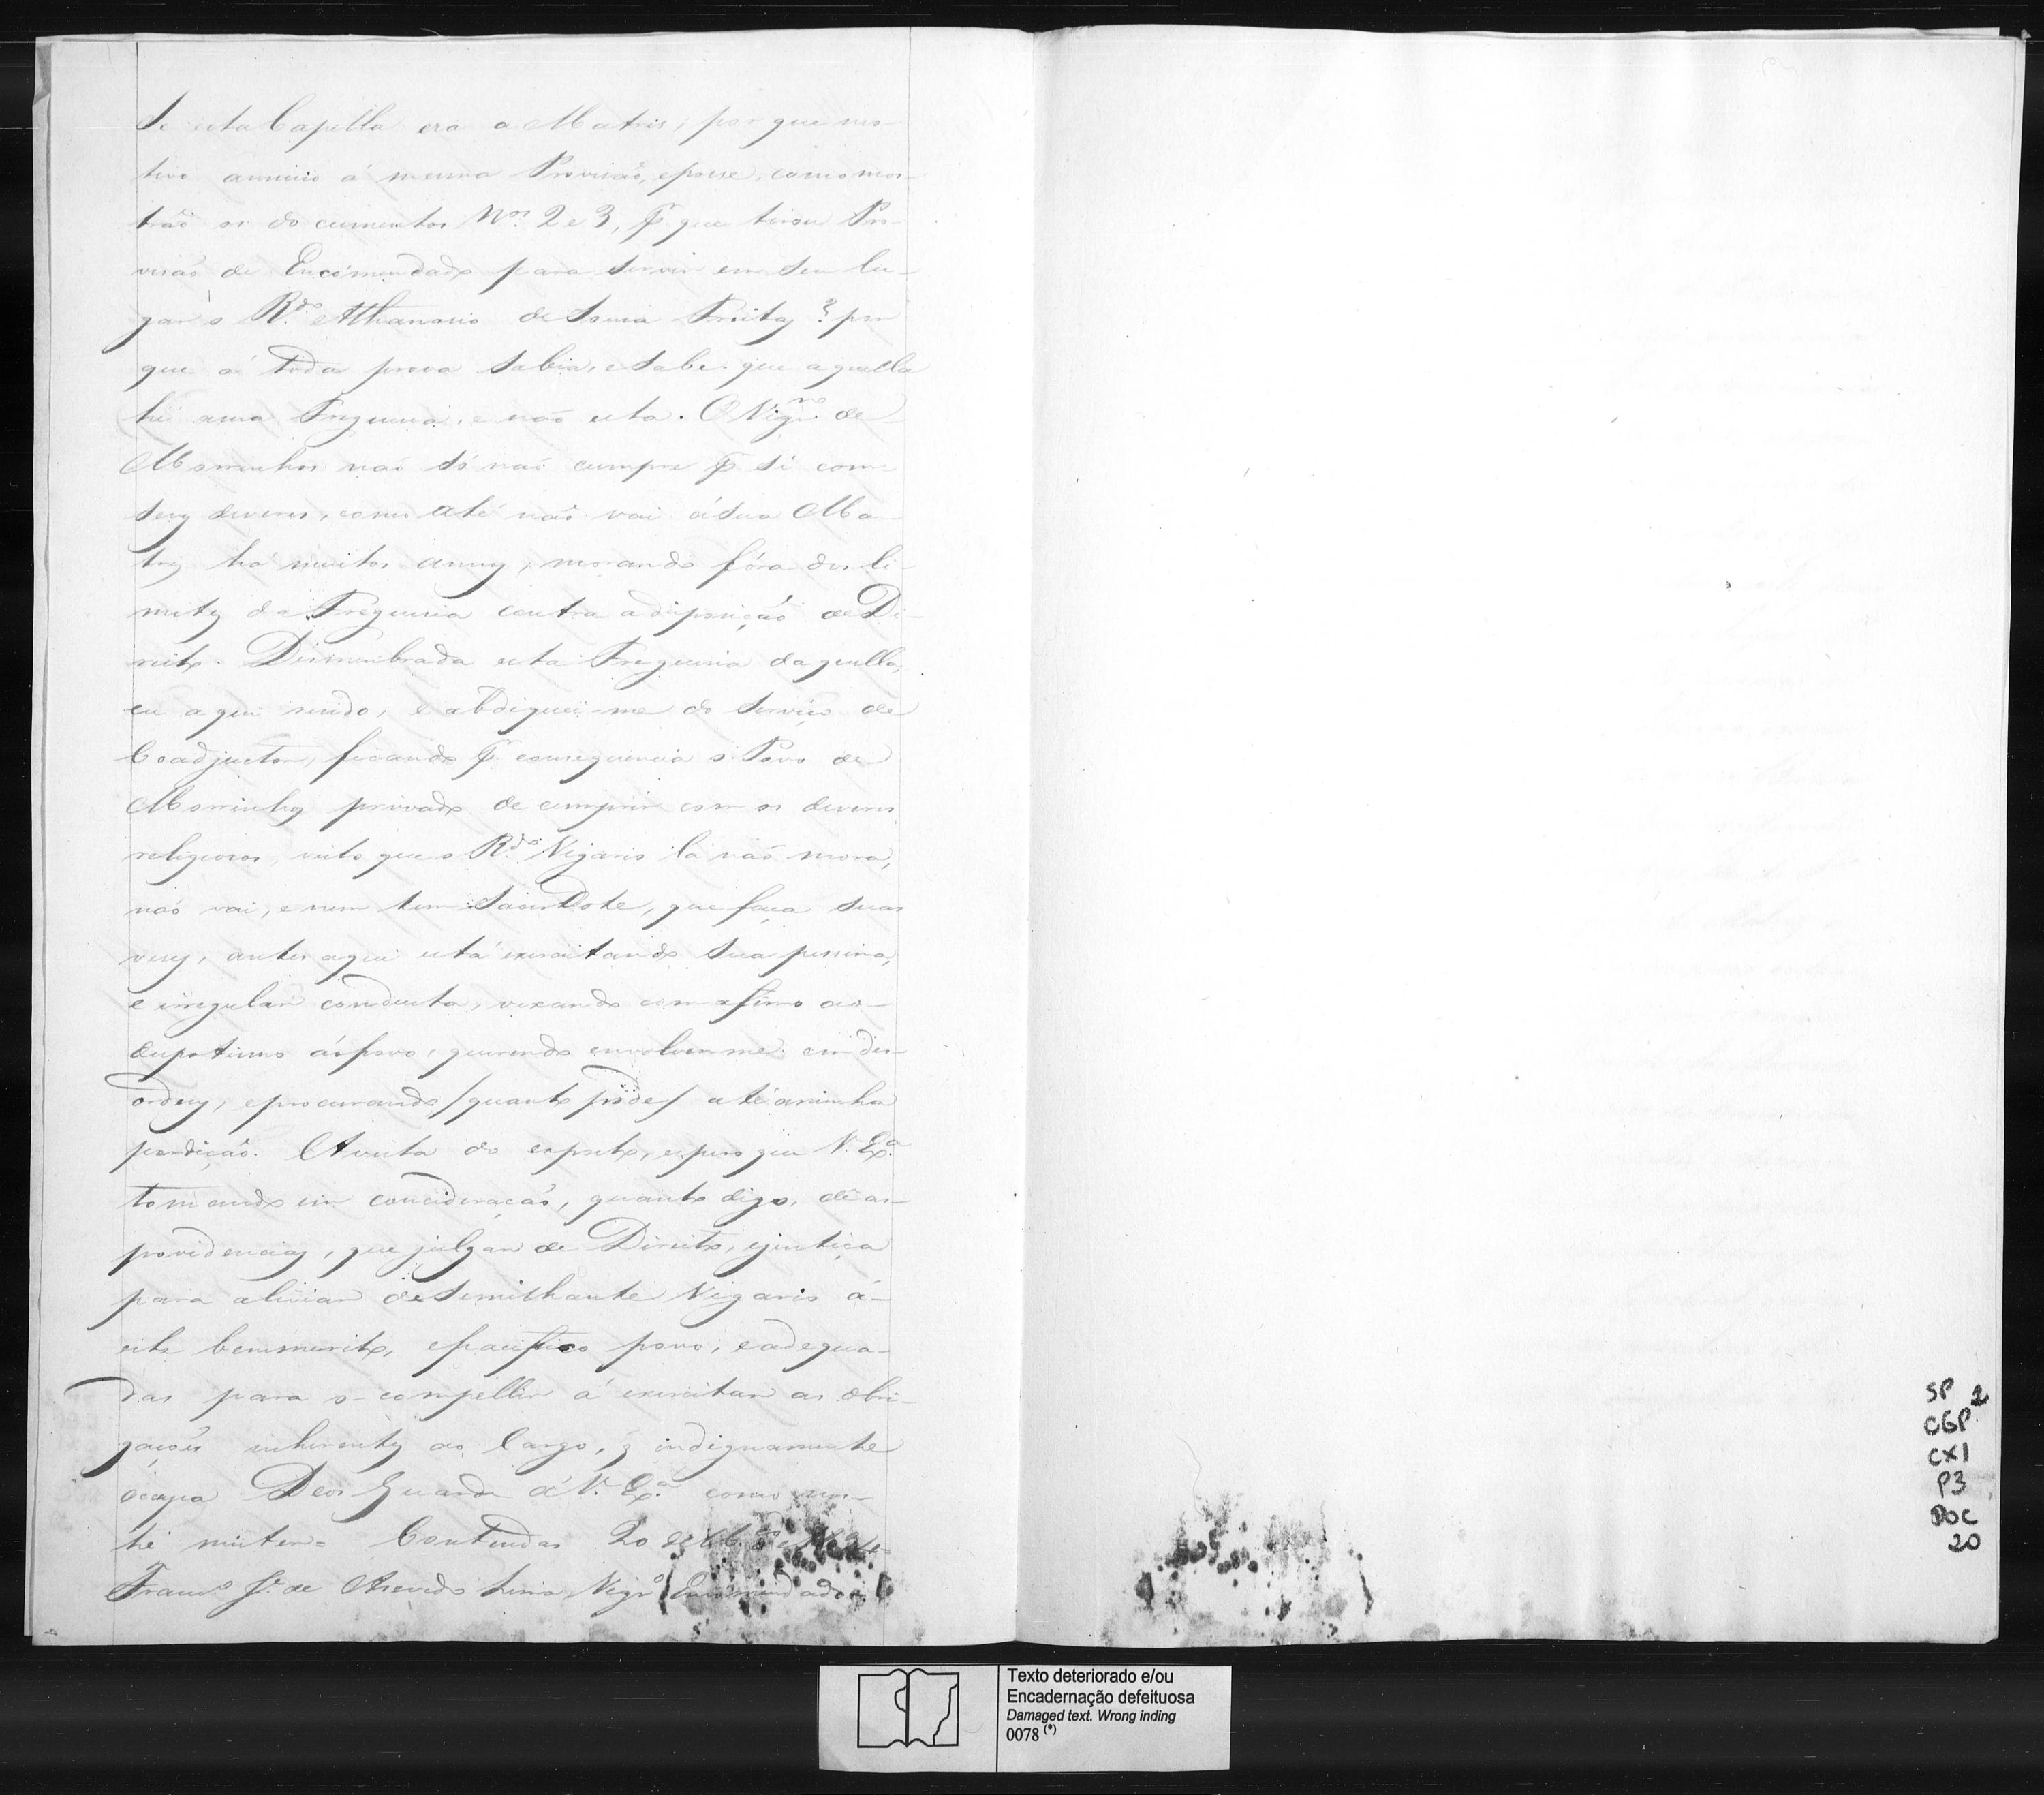 Se esta Capella era a Matris, por que mo-
tivo annuio á mesma Provisaõ, e posse, como mos-
traõ os documentos Nos. 2 e 3, pr. que tirou Pro-
visaõ de Encõmendado para servir em seu lu-
gar o Rdo. Athanasio de Souza Freitas? por
que á toda prova sabia, e sabe que aquella
he uma Freguesia, e naõ esta. O Vigro. de
Morrinhos naõ só naõ cumpre pr. si com
seus deveres, como até naõ vai á sua Ma-
tris há muitos annos, morando fóra dos li-
mites da Freguesia contra a disposiçaõ de Di-
reito. Dismembrada esta Freguesia daquella,
eu aqui resido, e abdiquei-me do serviço de
Coadjuctor, ficando pr. consequencia o Povo de
Morrinhos privado de cumprir com os deveres
religiosos, visto que o Rdo. Vigario lá naõ mora,
naõ vai, e nem tem Sacerdote, que faça suas
veses, antes aqui está exercitando sua pessima,
e irregular conducta, vexando com afinco ao-
despotismo áo povo, querendo envolver-me em des-
ordens, e procurando /quanto póde/ até a minha
perdiçaõ. A vista do exposto, espero que V. Exa.
tomando em concideraçaõ, quanto digo, dê as-
providencias, que julgar de Direito, e justiça
para aliviar de similhante Vigario á-
este benemerito, e pacifico povo, e adequa-
das para o compellir á exercitar as obri-
gaçoẽs inherentes ao Cargo, q indignamente
ócupa Deos Guarde á V. Exa. como nos-
he mister= Contendas 20 de
Franco. Je. de Asevedo Lima Vigro. Encõmendado=
SP 2
CGP
CX1
P3
DOC
20
Texto deteriorado e/ou
Encadernação defeituosa
Damaged text. Wrong inding
0078 (*)